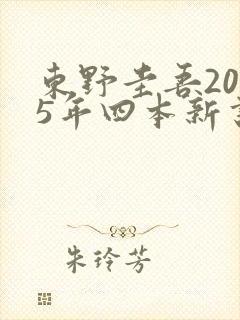 東野圭吾20
5年四本新
朱玲芳